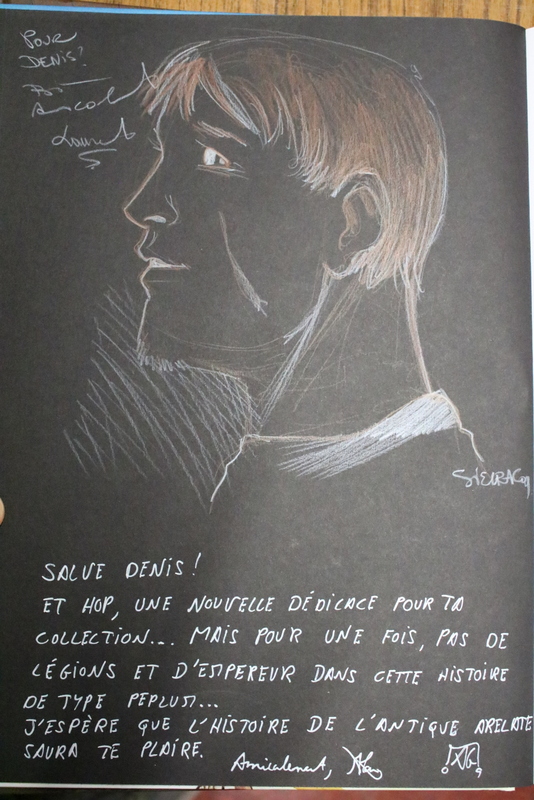 POUR
DENIS!
Laurent
SIEURAC
SALVE DENIS!
ET HOP, UNE NOUVELLE DÉDICACE POUR TA
COLLECTION... MAIS POUR UNE FOIS, PAS DE
LÉGIONS ET D'EMPEREUR DANS CETTE HISTOIRE
DE TYPE PEPLUM...
J'ESPÈRE QUE L'HISTOIRE DE L'ANTIQUE ARELATE
SAURA TE PLAIRE.
Amicalement,